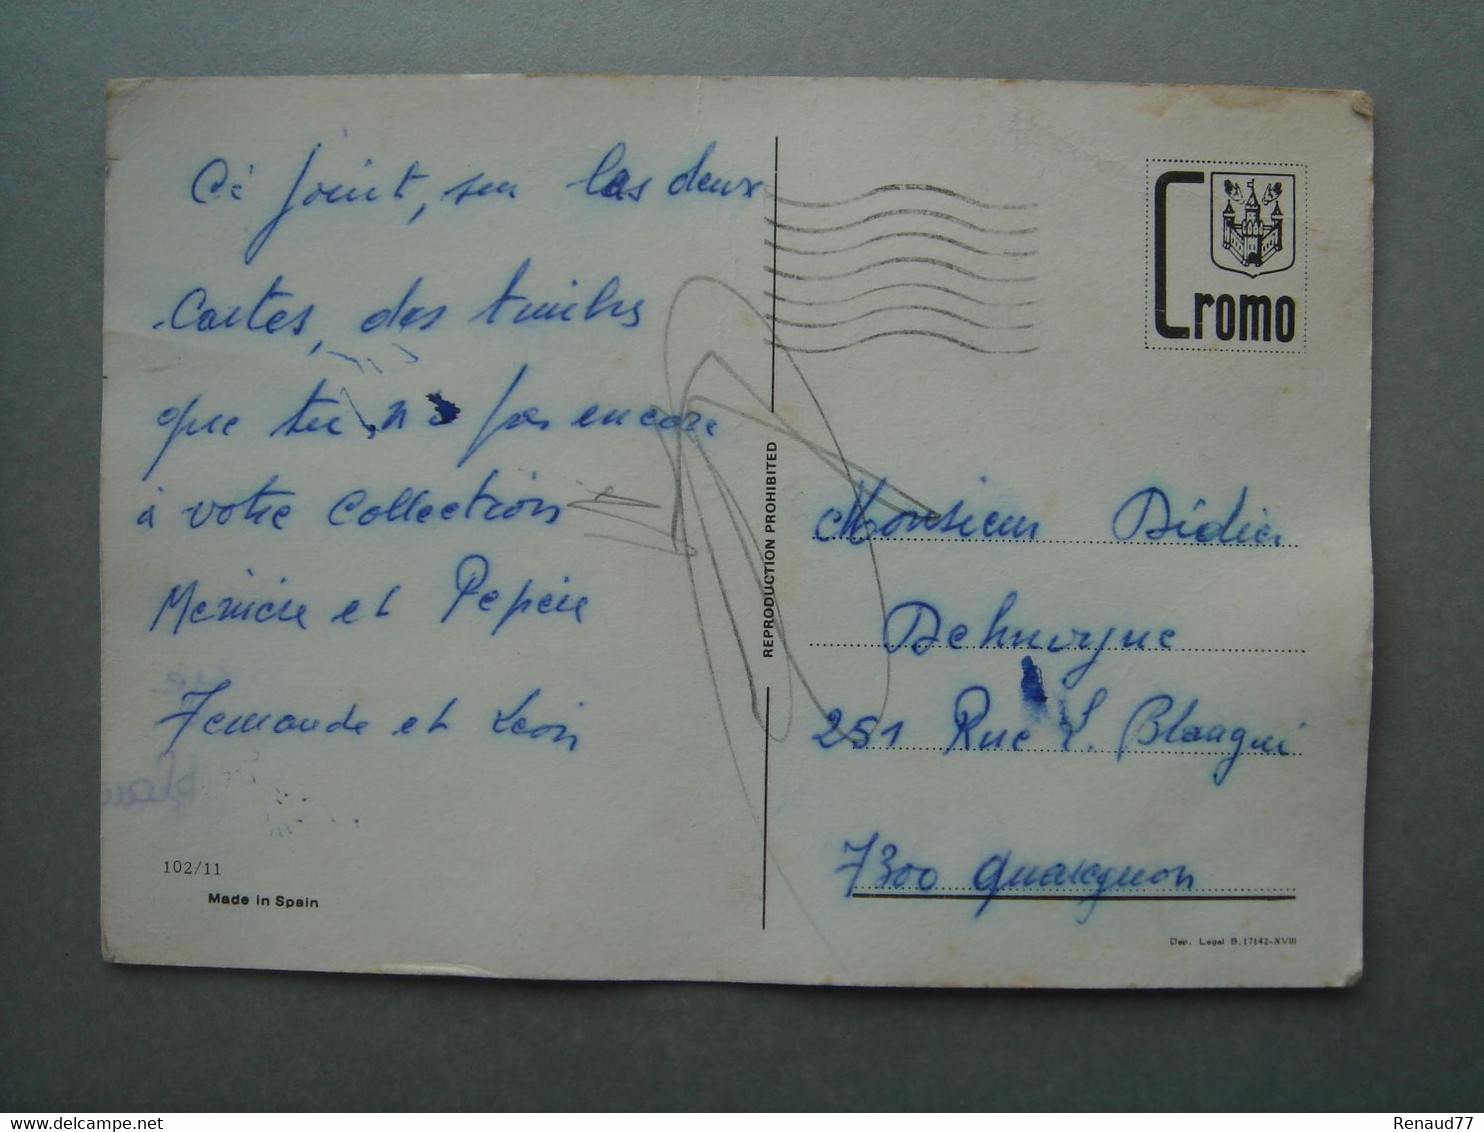 Ci joint, sur les deux
cartes, des timbres
que tu n'a pas encore
à votre collection
Mémère et Pépère
Fernande et Léon
102/11
Made in Spain
REPRODUCTION PROHIBITED
Cromo
Monsieur Didier
Dehuvyne
251 Rue L. Blangui
7300 Quaregnon
Dep. Legal B. 17142-XVIII
Renaud77